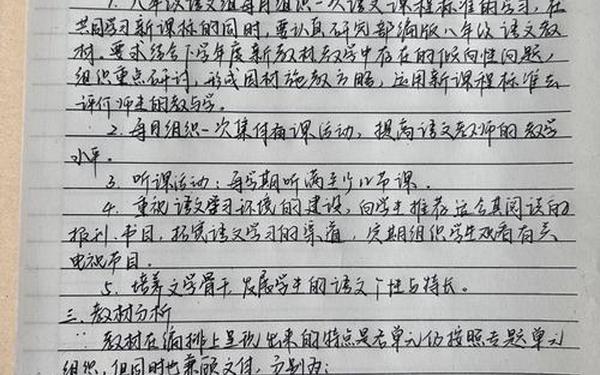 1. 八年级语文组每月组织一次语文课程标准的学习，在
共同学习新课标的同时，要认真研究部编版八年级语文教
材。要求结合下学年度新教材教学中存在的倾向性问题，
组织重点研讨，形成因材施教方略，运用新课程标准去
评价师生的教与学。
2. 每月组织一次集体备课活动，提高语文教师的教学
水平。
3. 听课活动：每学期听满至少12节课。
4. 重视语文学习环境的建设，向学生推荐适合其阅读的
报刊、书目，拓宽语文学习的渠道，定期组织学生观看有关
电视节目。
5. 培养文学骨干，发展学生的语文个性与特长。
三、教材分析
教材在编排上呈现出来的特点是各单元仍按照专题单元
组织，但同时也兼顾文体，分别为：